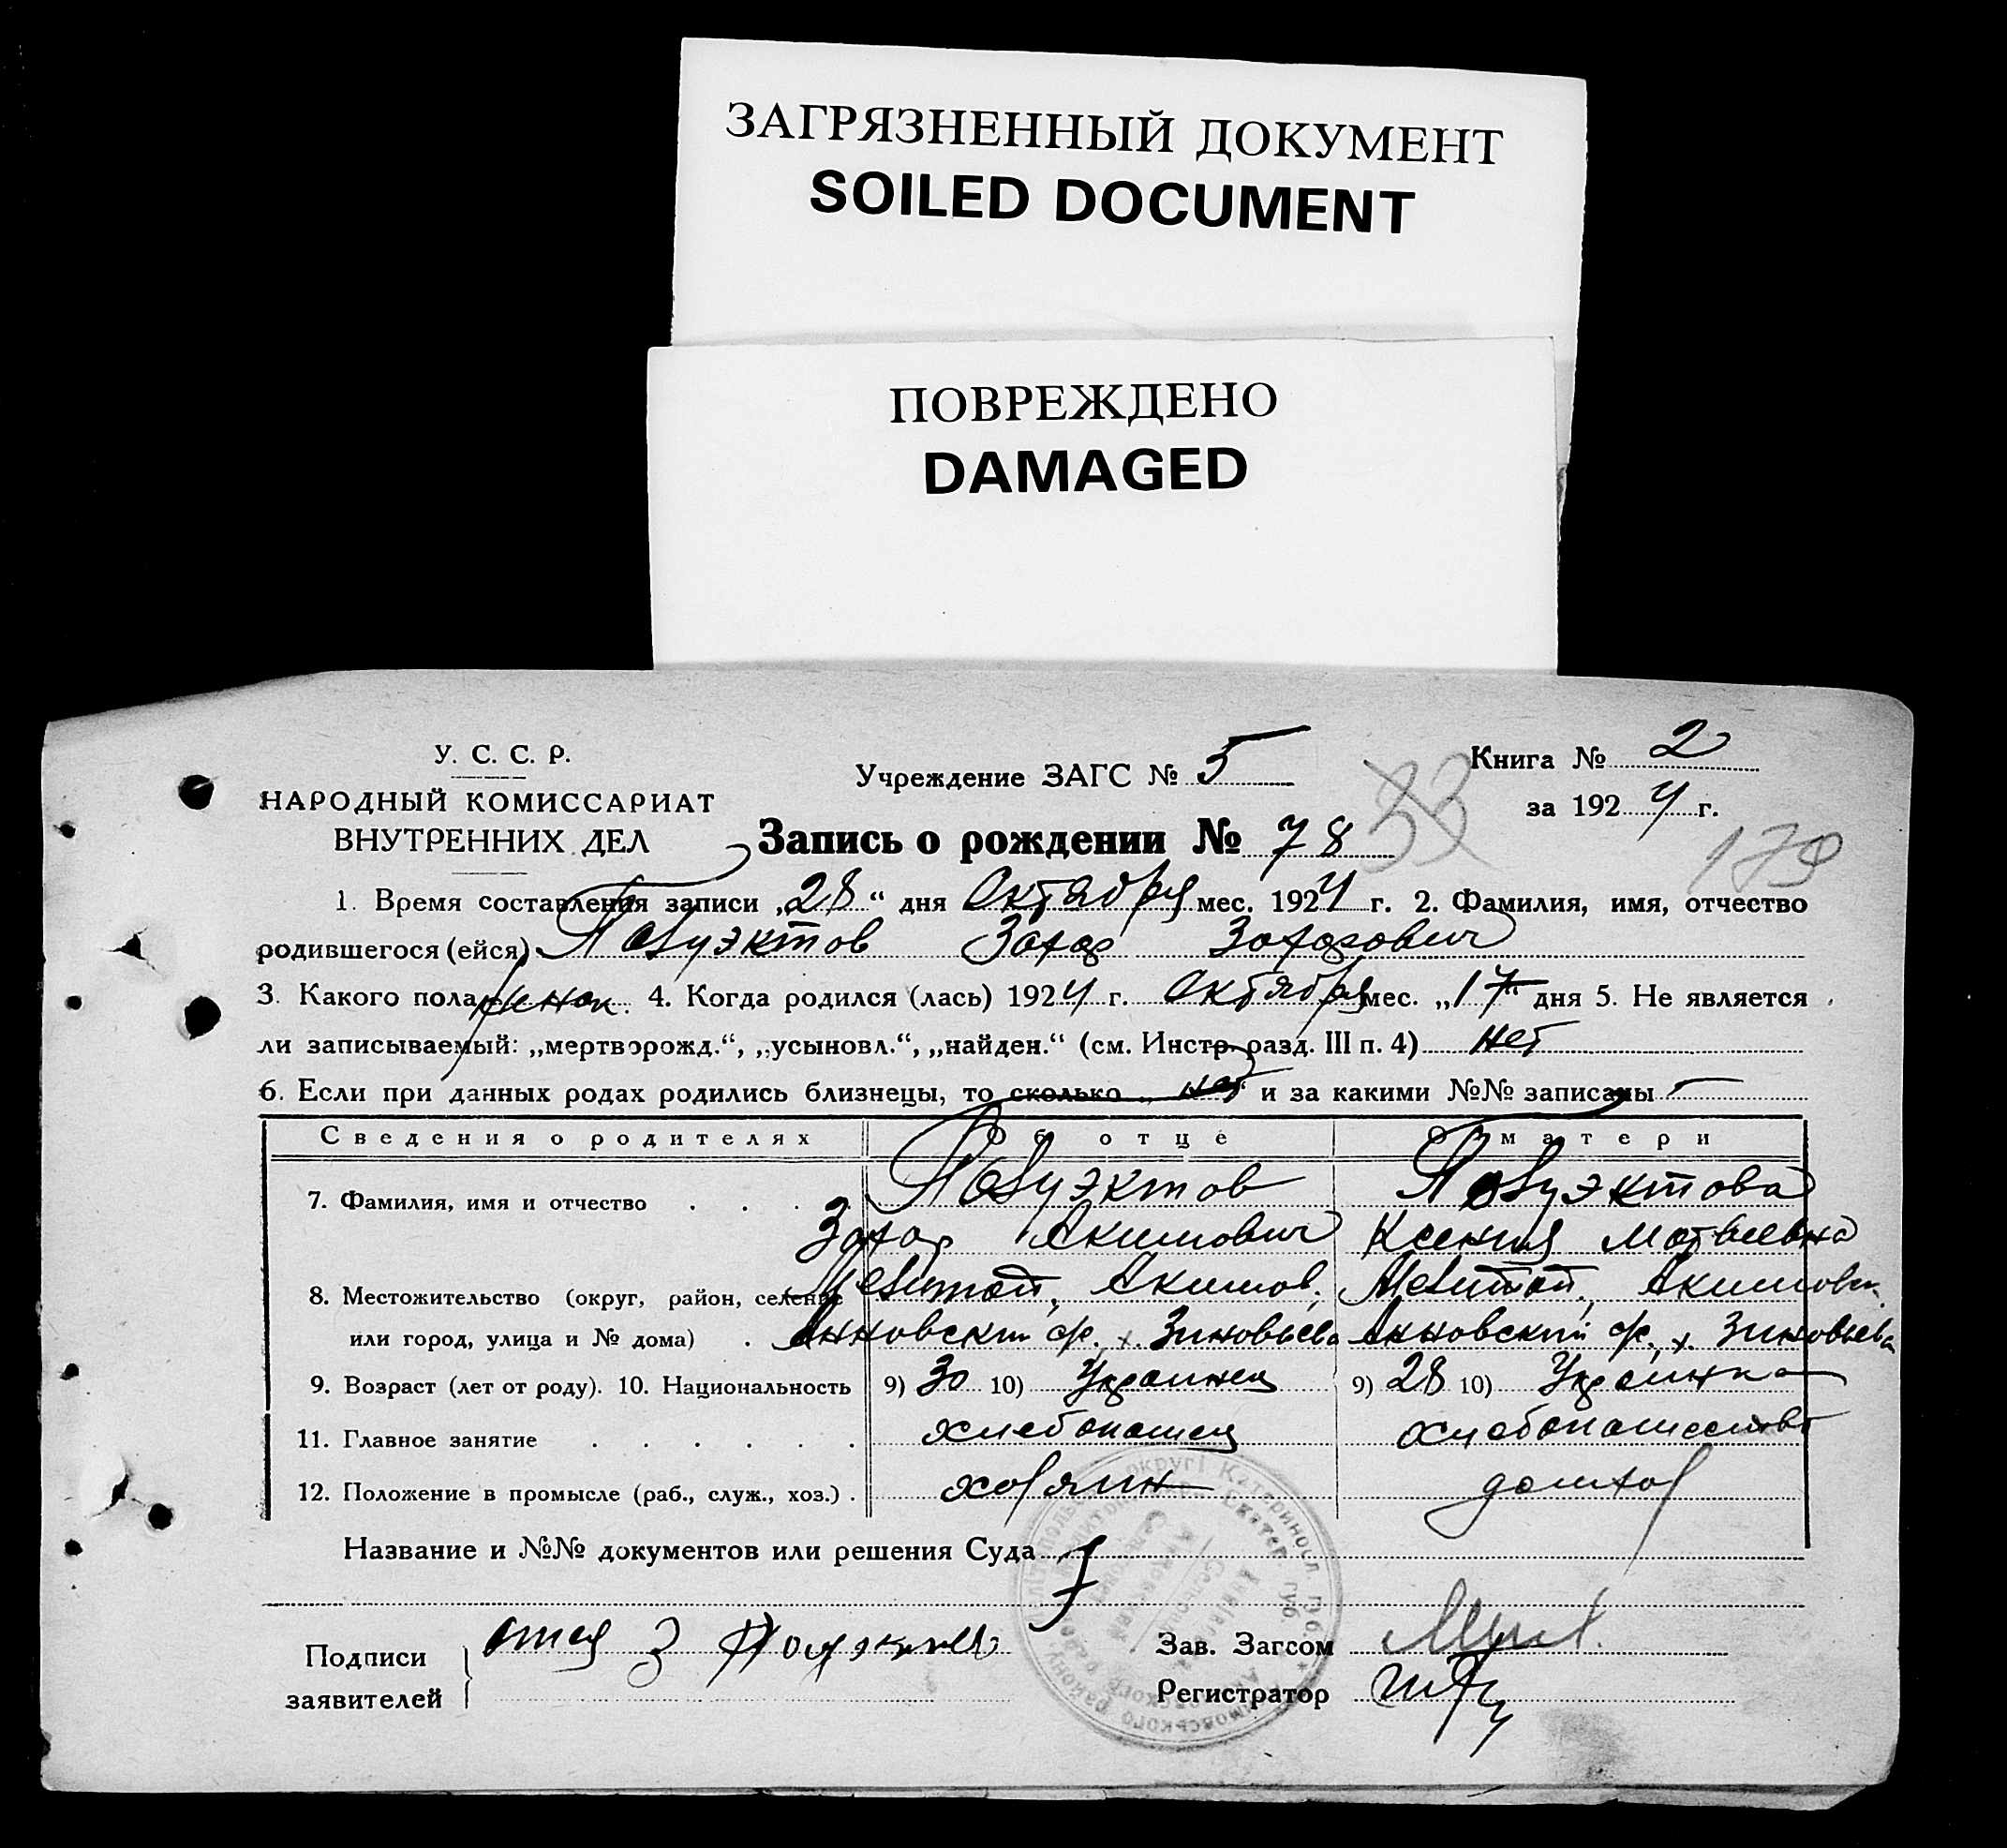 ЗАГРЯЗНЕННЫЙ ДОКУМЕНТ
SOILED DOCUMENT
ПОВРЕЖДЕНО
DAMAGED
У. С. С. Р.
НАРОДНЫЙ КОМИССАРИАТ
ВНУТРЕННИХ ДЕЛ
Учреждение ЗАГС № 5
Книга № 2
за 1924 г.
33
Запись о рождении № 78
179
1. Время составления записи „28“ дня Октября мес. 1924 г. 2. Фамилия, имя, отчество
родившегося (ейся) Полуэктов Захар Захарович
3. Какого пола 4. Когда родился (лась) 1924 г. Октября мес. „17“ дня 5. Не является
ли записываемый: „мертворожд.“, „усыновл.“, „найден.“ (см. Инстр. разд. III п. 4) нет
6. Если при данных родах родились близнецы, то сколько „нет“ и за какими №№ записаны —
Сведения о родителях Об отце О матери
7. Фамилия, имя и отчество . . . . Полуэктов Полуэктова
Захар Акимович Ксения Матвеевна
8. Местожительство (округ, район, селение Мелитоп., Акимов. Мелитоп., Акимовск.
или город, улица и № дома) . Анновский с/с., х. Зиновьева Анновский с/с., х. Зиновьева
9. Возраст (лет от роду). 10. Национальность 9) 30 10) Украинец 9) 28 10) Украинка
11. Главное занятие . . . . . . хлебопашец хлебопашество
12. Положение в промысле (раб., служ., хоз.) . хозяин домхоз
Название и №№ документов или решения Суда
Подписи
заявителей
отец З Полуэктов
Зав. Загсом
Регистратор